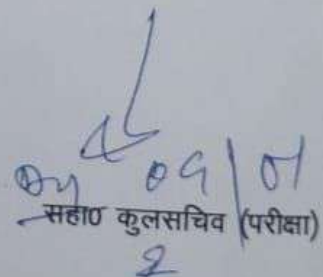 09/01
सहा० कुलसचिव (परीक्षा)
2